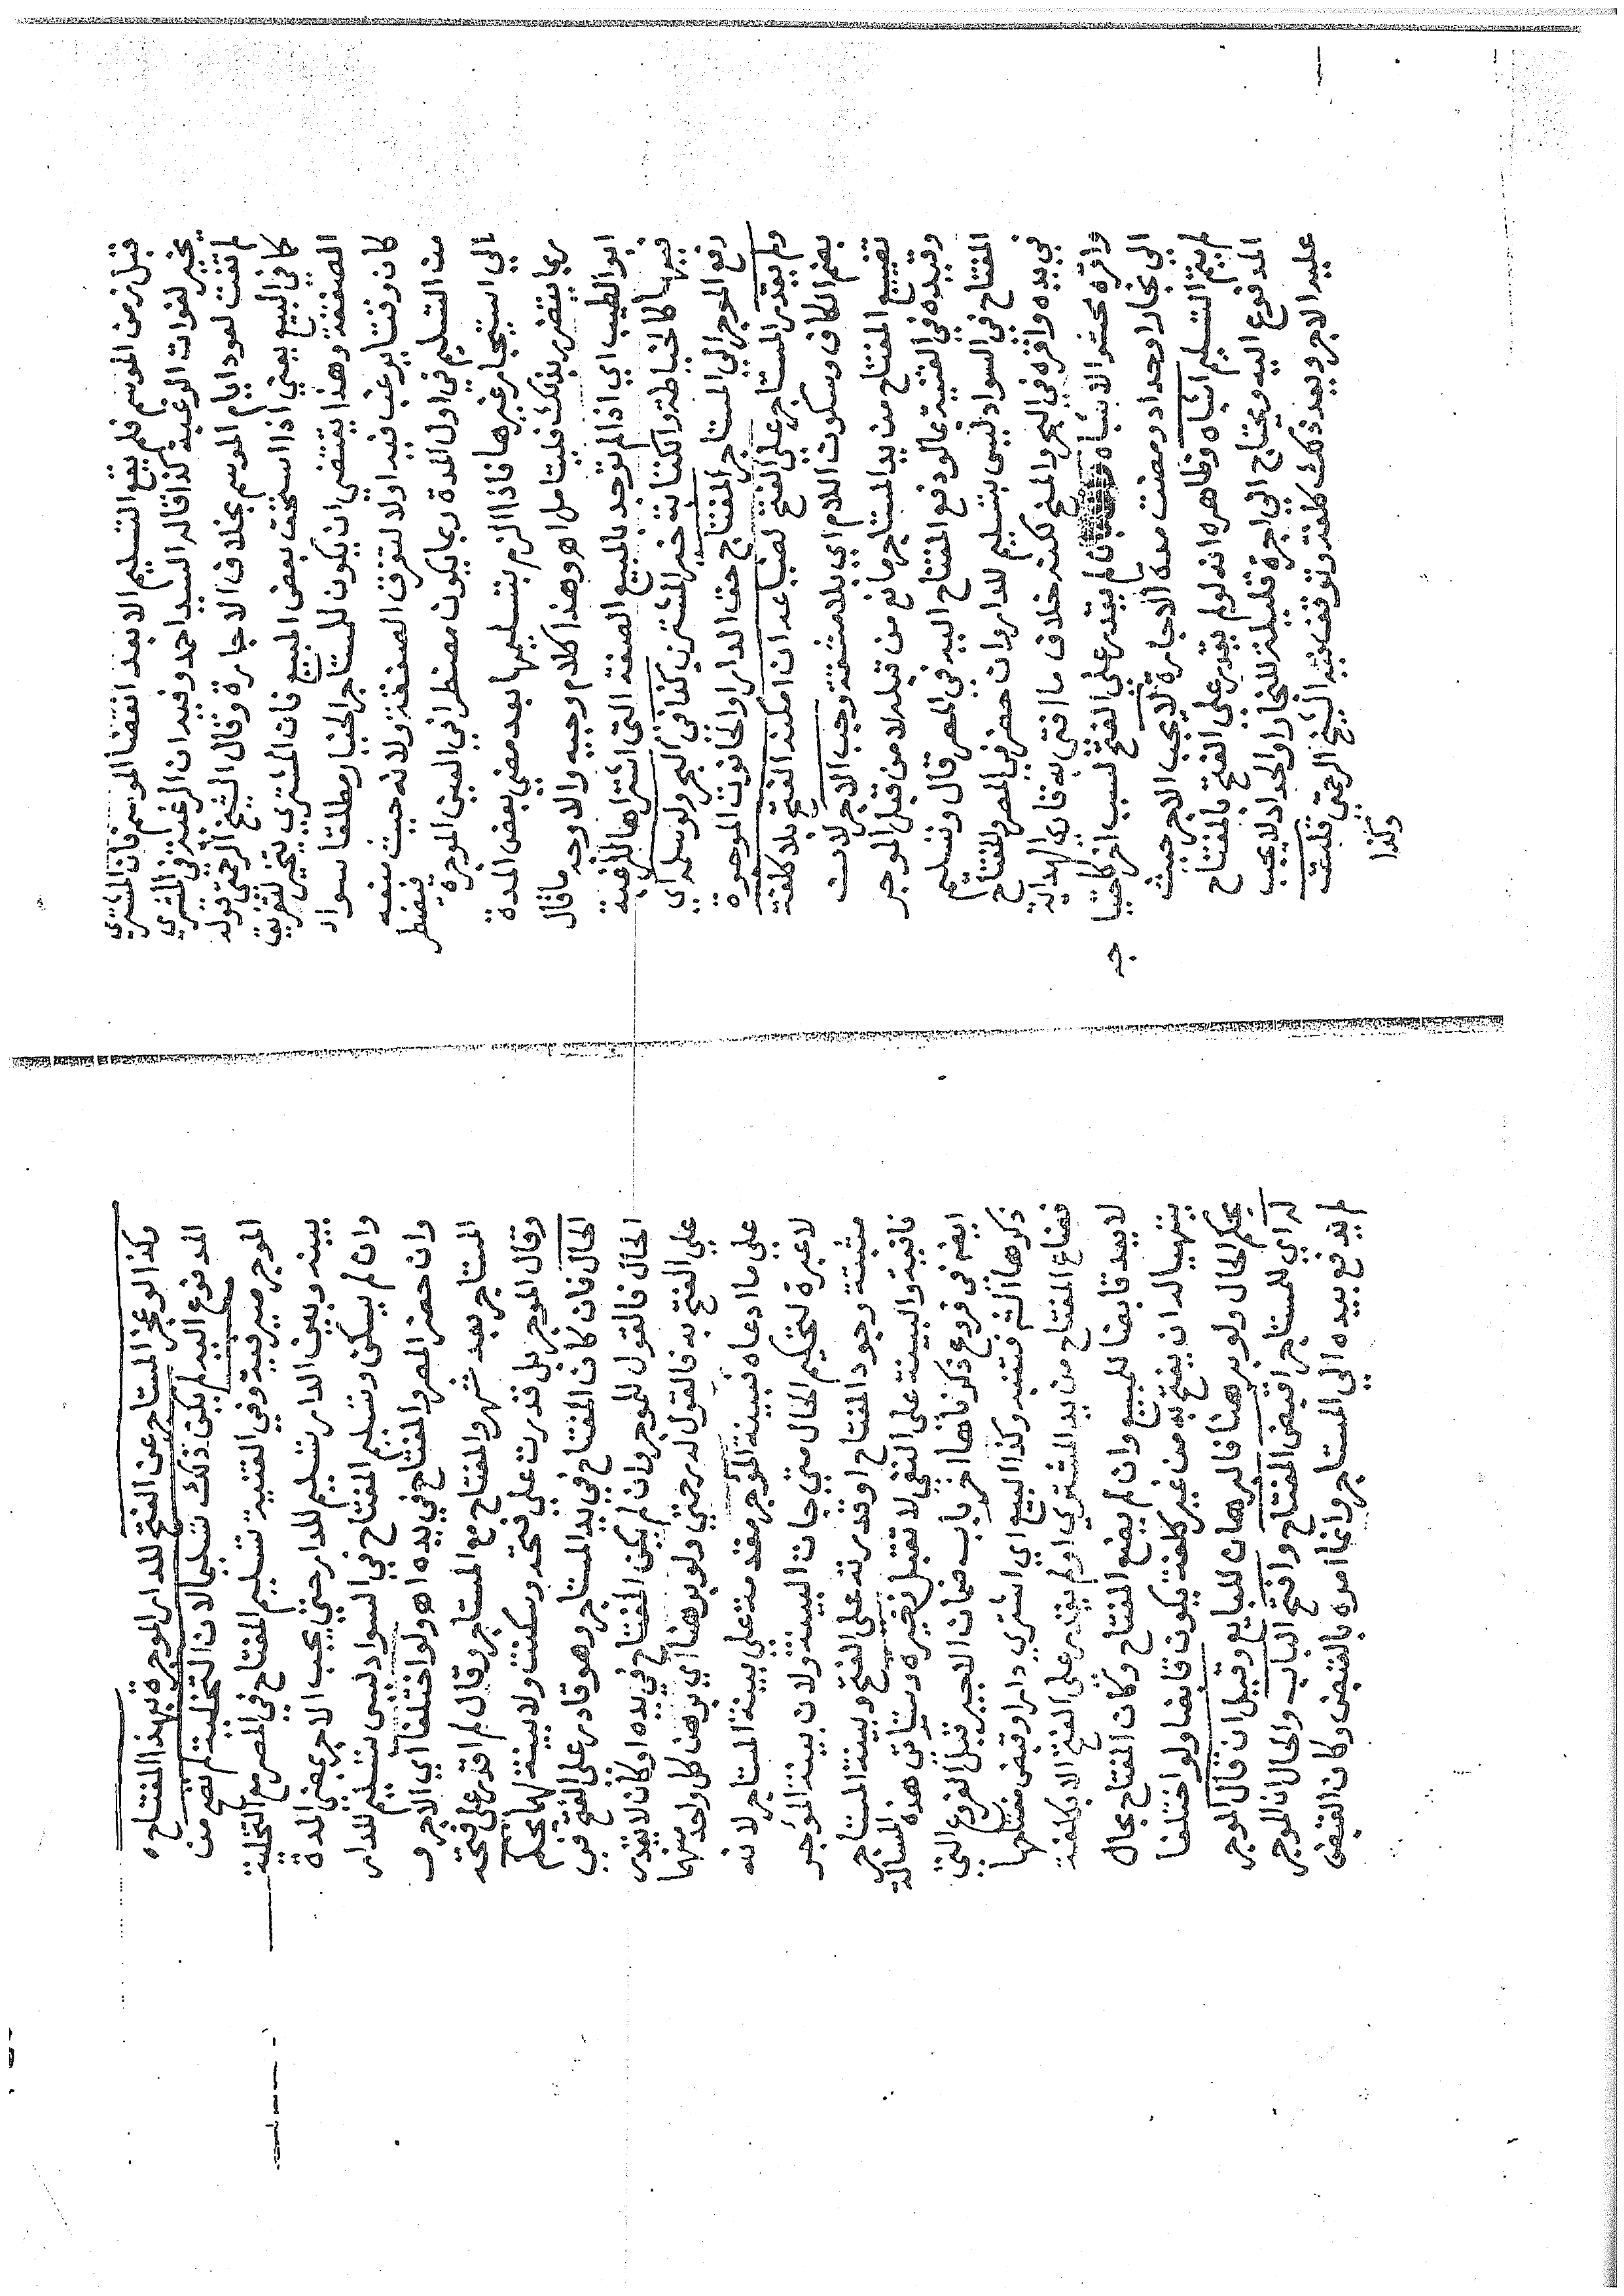 قبل زمن الموسم فلم يقع التسليم الا بعد انقضا الموسم فان المشتري
يخير لفوات الرغبة كذا قاله السيد احمد وفيه ان الرغبة في المشتري
لم تفت لعود ايام الموسم بخلاف الاجارة وقال الشيخ الرحمتي قوله
كما في البيع يعني اذا استحق بعض المبيع فان المشتري يتخير لتفريق
الصفقة وهذا يقتضي ان يكون للمستاجر الخيار مطلقا سوا
كان وقتا يرغب فيه اولا لتفرق الصفقة ولانه حيث منعه
من التسليم في اول المدة ربما يكون مضطرا في العين الموجرة فيضطر
الى استيجار غيرها فاذا الزم بتسليمها بعد مضي بعض المدة
ربما يتضرر بذلك فليتامل اهـ وهذا كلام وجيه والاوجه ما قال
ابو الطيب اي اذا لم توجد بالمبيع الصفة التي اشتراها للرغبة
فيها كالخياطة والكتابة خير المشتري كذا في البحر ولو سلمه اي
دفع الموجر الى المستاجر المفتاح حق الدار او الحانوت الموجرة
ولم يقدر المستاجر على الفتح لضياعه ان امكنه الفتح بلا كلفة
بضم الكاف وسكون اللام اي بلا مشقة وجب الاجر لان
تضييع المفتاح من يد المستاجر مانع من قبله لا من قبل الموجر
وقيده في القنية بما لو دفع المفتاح اليه في المصر قال وتسليم
المفتاح في السواد ليس بتسليم للدار وان حضر في المصر والمفتاح
في يده واقره في البحر والمنح لكنه خلاف ما افتى به قارئ الهداية
واقره محشو الاشباه بان لم يقدر على الفتح لسبب اخر كاحتيا
جه
الى نجار او حداد ومضت مدة الاجارة لا يجب الاجر حيث
لم يتم التسليم اشباه وظاهره انه لو لم يقدر على الفتح بالمفتاح
المدفوع اليه ويحتاج الى اجرة قليلة للنجار او الحداد لا يجب
عليه الاجر وبعد ذلك كلفة وتوقف فيه الشيخ الرحمتي قلت
وكذا
وكذا لو عجز المستاجر عن الفتح للدار الموجرة بهذا المفتاح
المدفوع اليه لم يكن ذلك تسليما لان التخلية لم تصح من
الموجر صيرفية وفي القنية تسليم المفتاح في المصر مع التخلية
بينه وبين الدار تسليم للدار حتى يجب الاجر بمضي المدة
وان لم يسكن وتسليم المفتاح في السواد ليس بتسليم للدار
وان حضر المصر والمفتاح في يده اهـ ولو اختلفا اي الاجر و
المستاجر بعد شهر والمفتاح مع المستاجر وقال لم اقدر على فتحه
وقال الموجر بل قدرت على فتحه وسكنت ولا بينة لهما يحكم
الحال فان كان المفتاح في يد المستاجر وهو قادر على الفتح في
الحال فالقول للموجر وان لم يكن المفتاح في يده او كان لا يقدر
على الفتح به فالقول له رحمتي ولو برهنا اي برهن كل واحد منهما
على ما ادعاه فبينة المؤجر مقدمة على بينة المستاجر لانه
لا عبرة لتحكيم الحال متى جات البينة ولان بينة المؤجر
مثبتة وجود المفتاح او قدرته على الفتح وبينة المستاجر
نافية والبينة على النفي لا تقبل ذخيرة وستاتي هذه المسالة
ايضا في فروع ذكرناها اخر باب ضمان الاجير قبل الفروع التي
ذكرها الش فتنبه وكذا البيع اي اشترى دارا وقبض مفتاحها
فضاع المفتاح من يد المشتري او لم يقدر على الفتح الا بكلفة
لا يعد قابضا للمبيع وان لم يضع المفتاح وكان المفتاح بحال
يتهيا له ان يفتح به من غير كلفة يكون قابضا ولو اختلفا
يحكم الحال ولو برهنا فالبرهان للبايع وقيل ان قال الموجر
له اي للمستاجر اقبض المفتاح وافتح الباب والحال ان الموجر
لم يدفع بيده الى المستاجر وانما امره بالقبض وكان القبض